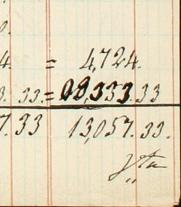 4. = 4,724.
3. 33. = 08,333.33
7.33 13,057.33.